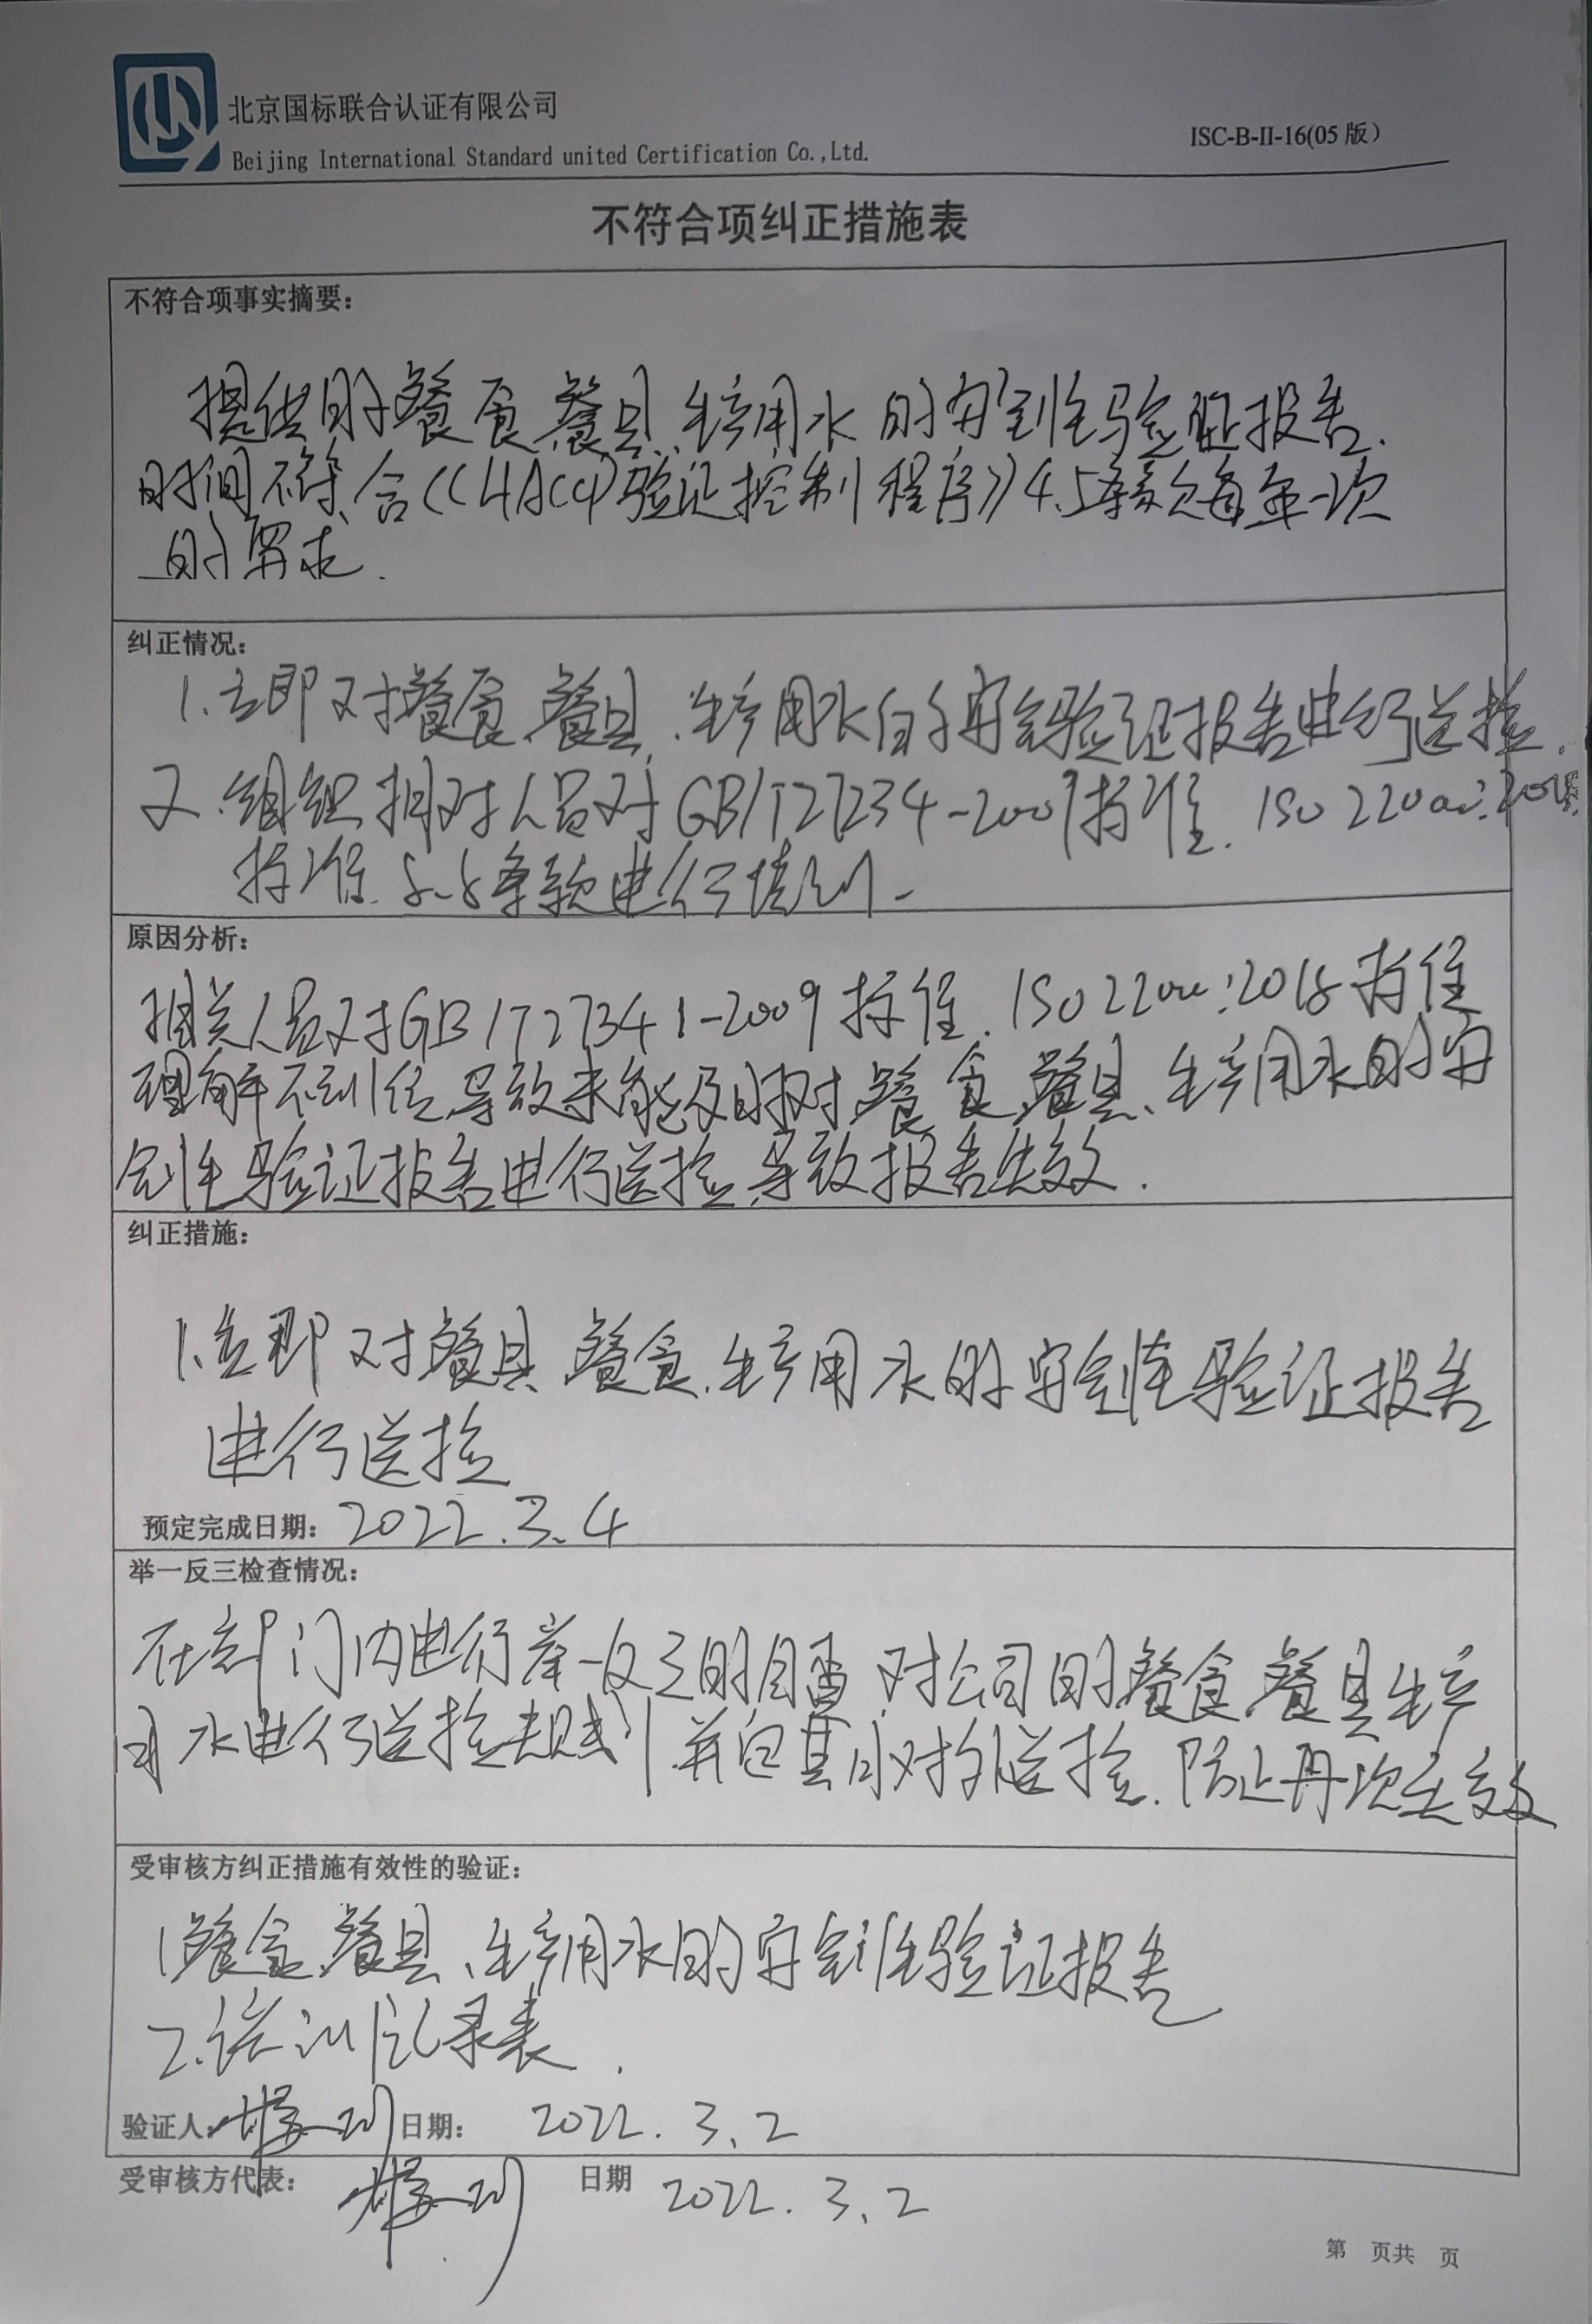 北京国标联合认证有限公司
Beijing International Standard united Certification Co.,Ltd.
ISC-B-II-16(05 版)
不符合项纠正措施表
不符合项事实摘要:
提供的餐食、餐具、生产用水的安全性验证报告.
时间不符合《HACCP验证控制程序》4.5条款每年一次
的要求.
纠正情况:
1.立即对餐食、餐具、生产用水的安全验证报告进行送检.
2.组织相对人员对GB/T27234-2009标准.ISO 22000:2018
标准.8.8条款进行培训.
原因分析:
相关人员对GB/T27341-2009标准.ISO22000:2018标准
理解不到位,导致未能及时对餐食、餐具、生产用水的安
全性验证报告进行送检,导致报告失效.
纠正措施:
1.立即对餐具、餐食、生产用水的安全性验证报告
进行送检
预定完成日期: 2022.3.4
举一反三检查情况:
在部门内进行举一反三的自查,对公司的餐食、餐具生产
用水进行送检规划,并定期对外送检.防止再次失效
受审核方纠正措施有效性的验证:
1餐食、餐具、生产用水的安全性验证报告
2.培训记录表.
验证人: 日期: 2022.3.2
受审核方代表: 日期 2022.3.2
第 页共 页